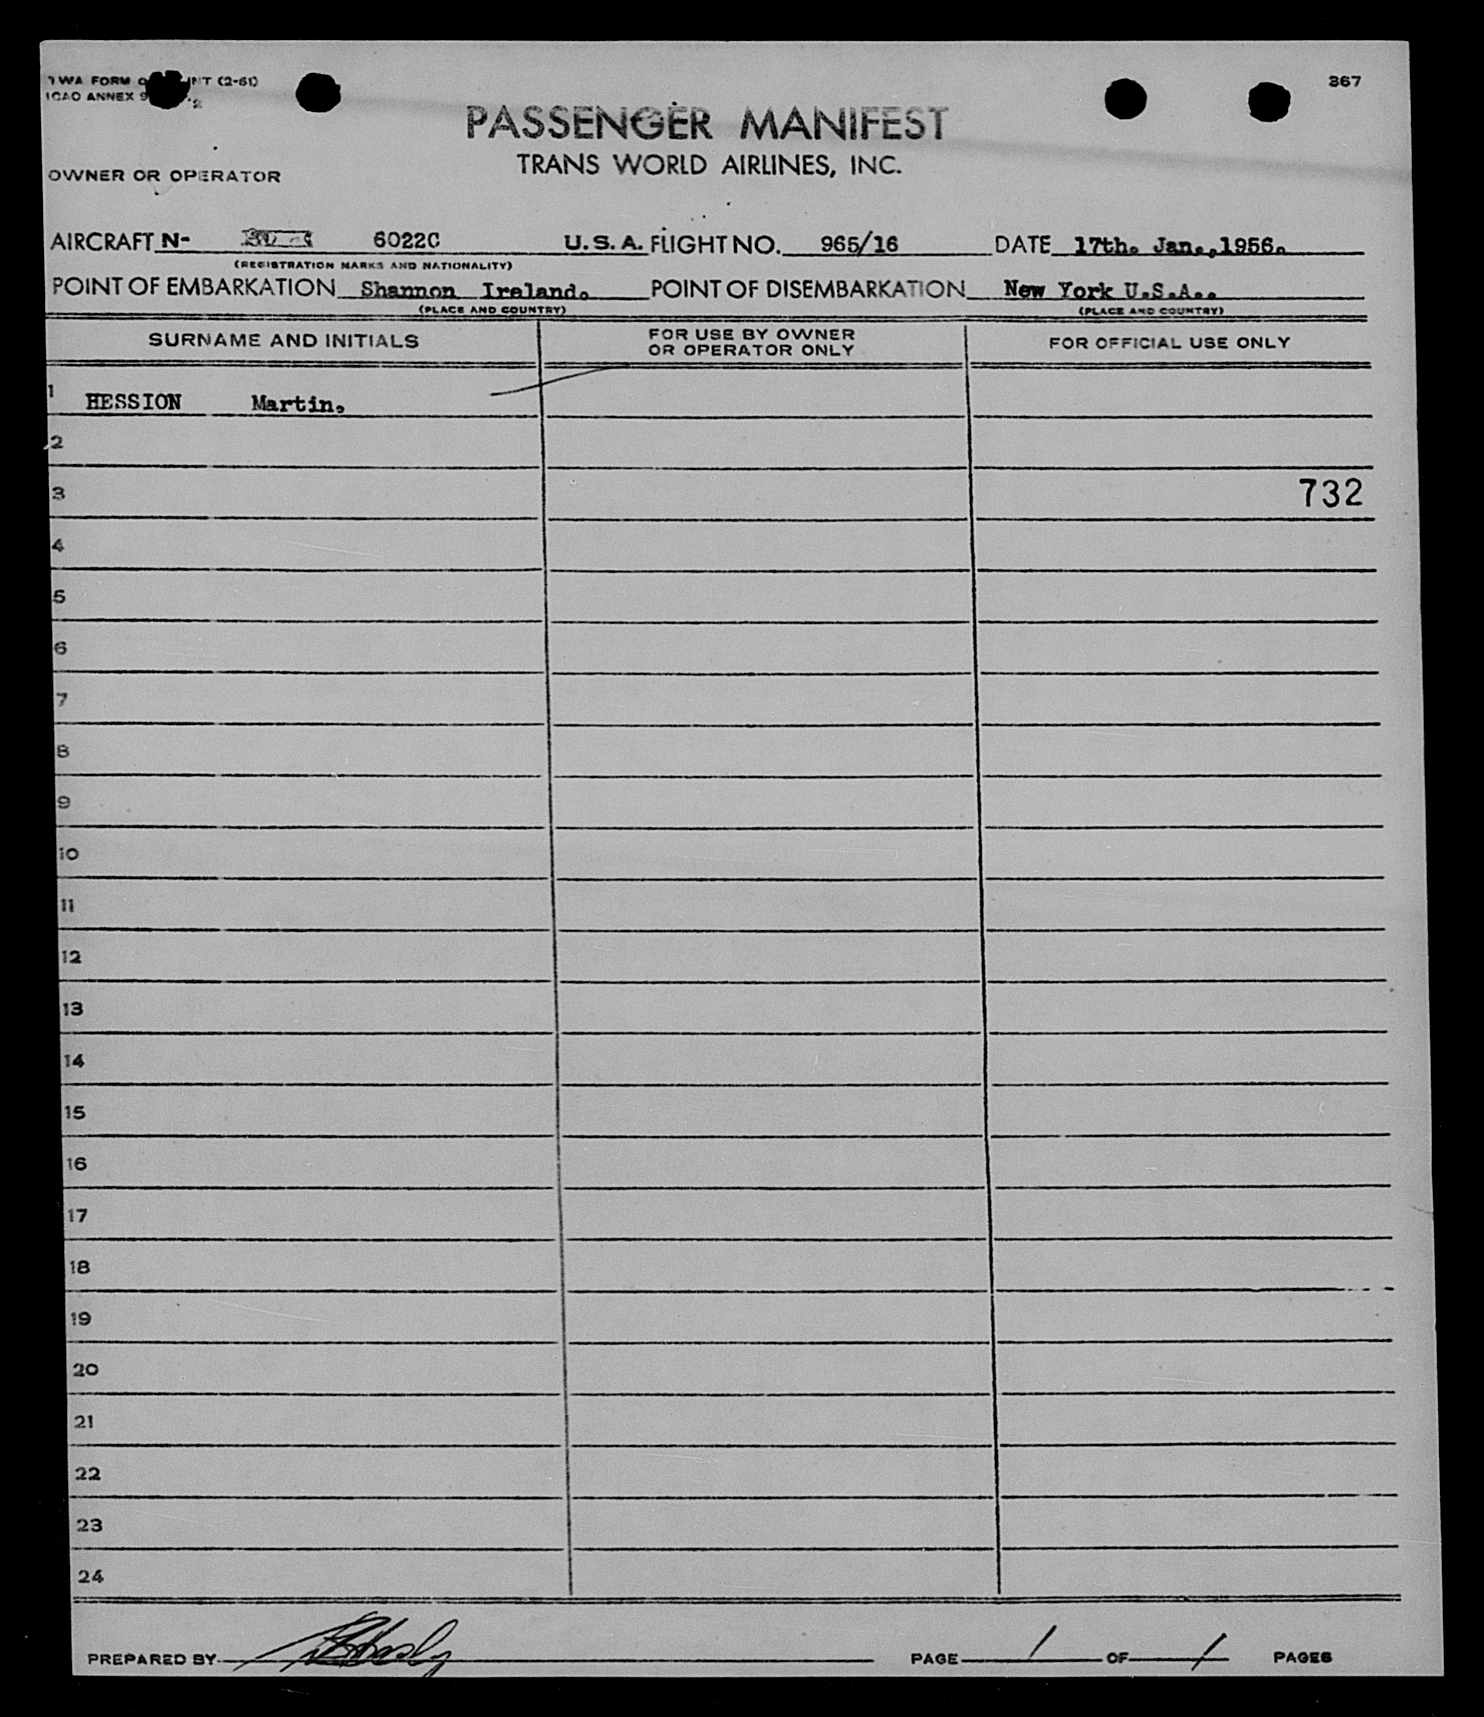 TWA FORM INT (2-51)
ICAO ANNEX 9
367
PASSENGER MANIFEST
TRANS WORLD AIRLINES, INC.
OWNER OR OPERATOR
AIRCRAFT N- 6022C U.S.A. FLIGHT NO. 965/16 DATE 17th. Jan.,1956.
(REGISTRATION MARKS AND NATIONALITY)
POINT OF EMBARKATION Shannon Ireland. POINT OF DISEMBARKATION New York U.S.A..
(PLACE AND COUNTRY) (PLACE AND COUNTRY)
SURNAME AND INITIALS FOR USE BY OWNER OR OPERATOR ONLY FOR OFFICIAL USE ONLY
1 HESSION Martin.
2
3 732
4
5
6
7
8
9
10
11
12
13
14
15
16
17
18
19
20
21
22
23
24
PREPARED BY PAGE 1 OF 1 PAGES